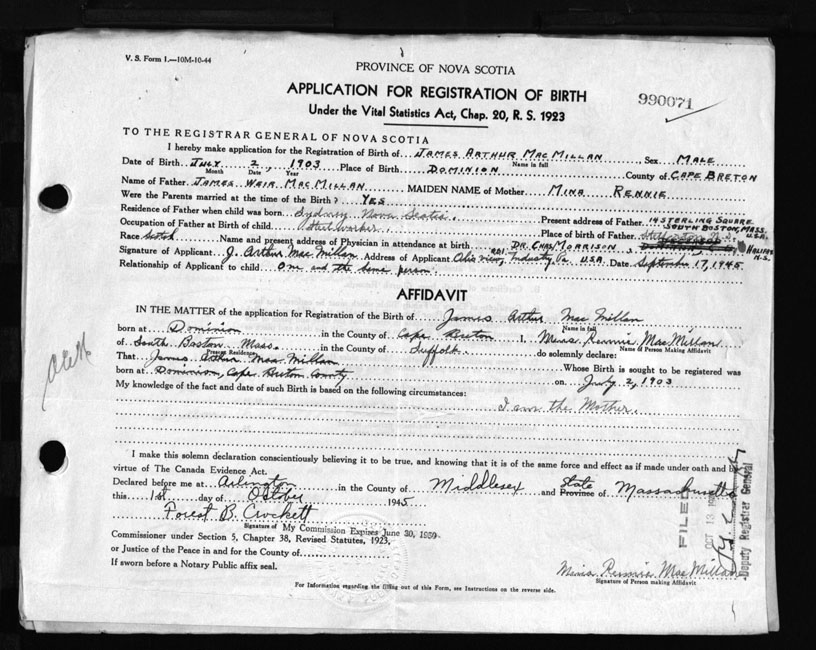 V. S. Form 1.—10M-10-44
PROVINCE OF NOVA SCOTIA
APPLICATION FOR REGISTRATION OF BIRTH
990071
Under the Vital Statistics Act, Chap. 20, R. S. 1923
TO THE REGISTRAR GENERAL OF NOVA SCOTIA
I hereby make application for the Registration of Birth of JAMES ARTHUR MACMILLAN, Sex MALE
Name in full
Date of Birth JULY 2, 1903 Place of Birth DOMINION County of CAPE BRETON
Month Date Year
Name of Father JAMES WEIR MACMILLAN MAIDEN NAME of Mother MINA RENNIE
Were the Parents married at the time of the Birth? YES
Residence of Father when child was born Sydney Nova Scotia. Present address of Father 19 STERLING SQUARE SOUTH BOSTON, MASS. U.S.A.
Occupation of Father at Birth of child Steelworker. Place of birth of Father
Race Scotch Name and present address of Physician in attendance at birth DR. CHAS. MORRISON HALIFAX N.S.
Signature of Applicant J. Arthur MacMillan Address of Applicant Ohio View, Industry, Pa. U.S.A. Date September 17, 1945
Relationship of Applicant to child One and the same person.
AFFIDAVIT
IN THE MATTER of the application for Registration of the Birth of James Arthur MacMillan
Name in full
born at Dominion in the County of Cape Breton I, Mina Rennie MacMillan
Name of Person Making Affidavit
of South Boston Mass. in the County of Suffolk. do solemnly declare:
Present Residence
That James Arthur MacMillan Whose Birth is sought to be registered was
born at Dominion, Cape Breton County on July 2, 1903
My knowledge of the fact and date of such Birth is based on the following circumstances:
I am the Mother.
I make this solemn declaration conscientiously believing it to be true, and knowing that it is of the same force and effect as if made under oath and by
virtue of The Canada Evidence Act.
Declared before me at Arlington in the County of Middlesex and State Province of Massachusetts
this 1st day of October 1945
Forest B. Crockett
Signature of My Commission Expires June 30, 1950
Commissioner under Section 5, Chapter 38, Revised Statutes, 1923,
or Justice of the Peace in and for the County of
If sworn before a Notary Public affix seal.
FILED
OCT 13
Deputy Registrar General
Mina Rennie MacMillan
Signature of Person making Affidavit
For Information regarding the filling out of this Form, see Instructions on the reverse side.